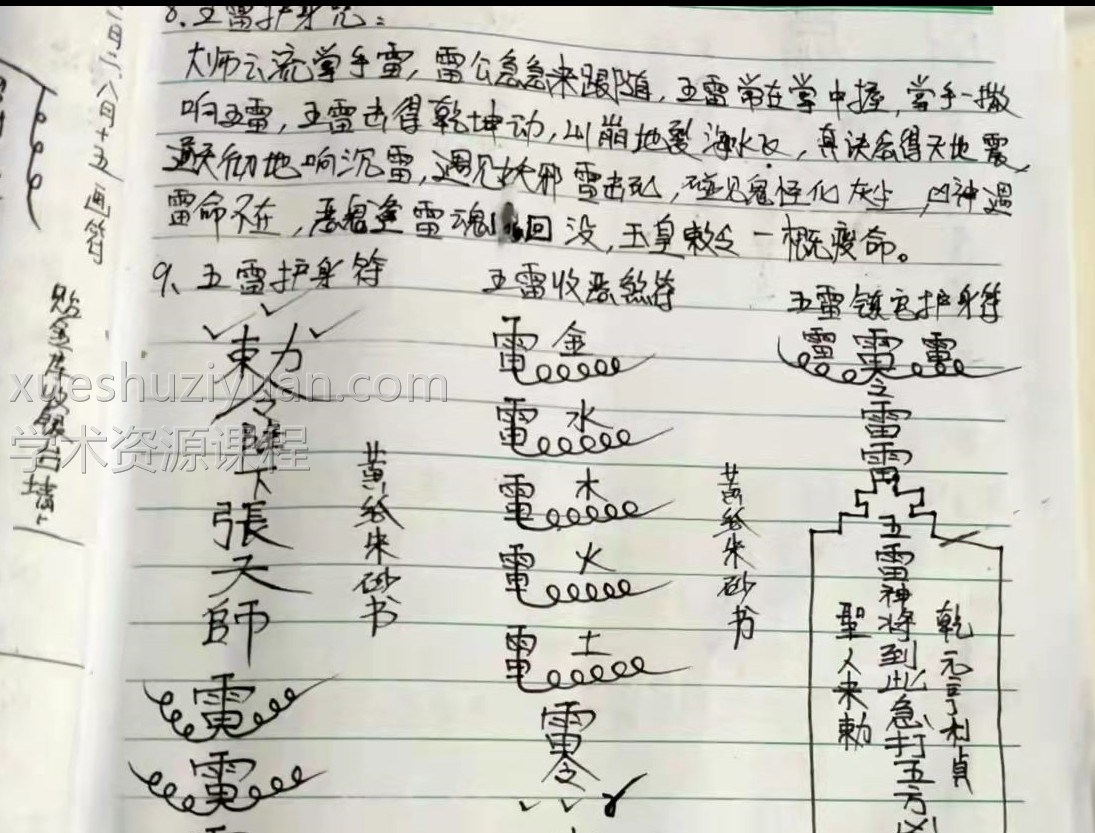 8.五雷护身咒：
大师云流掌手雷，雷公急急来跟随，五雷常在掌中握，掌手一撒
响五雷，五雷击得乾坤动，山崩地裂海水飞，真诀念得天地震，
通天彻地响沉雷，遇见妖邪雷击死，碰见鬼怪化灰尘，凶神遇
雷命不在，恶鬼逢雷魂回没，玉皇敕令一概废命。
9、五雷护身符
五雷收恶煞符
五雷镇宅护身符
東力
令
降
下
張
天
師
雷
雷
黄纸朱砂书
雷金
雷水
雷木
雷火
雷土
雷
令
黄纸朱砂书
雷雷雷
令
雷
雷
五雷神将到此急打五方凶
聖人来勅
乾元亨利貞
月二八月十五画符
xueshuziyuan.com
学术资源课程